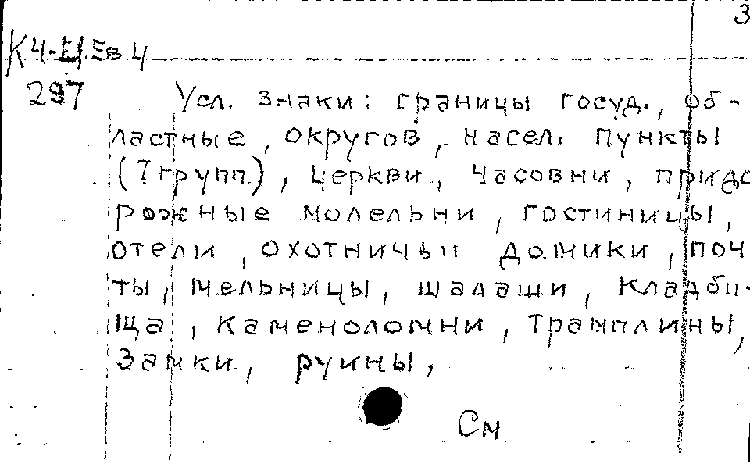 3
К4-Е1.Ев 4
297 Усл. знаки: границы госуд., об-
ластные, округов, насел. пункты
(7 групп.), церкви, часовни, придо
рожные молельни, гостиницы,
отели, охотничьи домики, поч
ты, мельницы, шалаши, кладби-
ща, каменоломни, трамплины,
замки, руины,
См